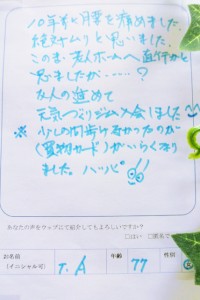 10年前に腰を痛めました。
絶対ムリと思いました。
このまゝ老人ホームへ直行かと
思いましたが‥‥‥?
友人の進めで
元気づくりジム入会しました
少しの間歩けなかったのが
(買物カード)がいらなくなり
ました。ハッピー!!
あなたの声をウェブにて紹介してもよろしいですか?
□はい □匿名で
お名前
(イニシャル可)
T.A
年齢
77
性別